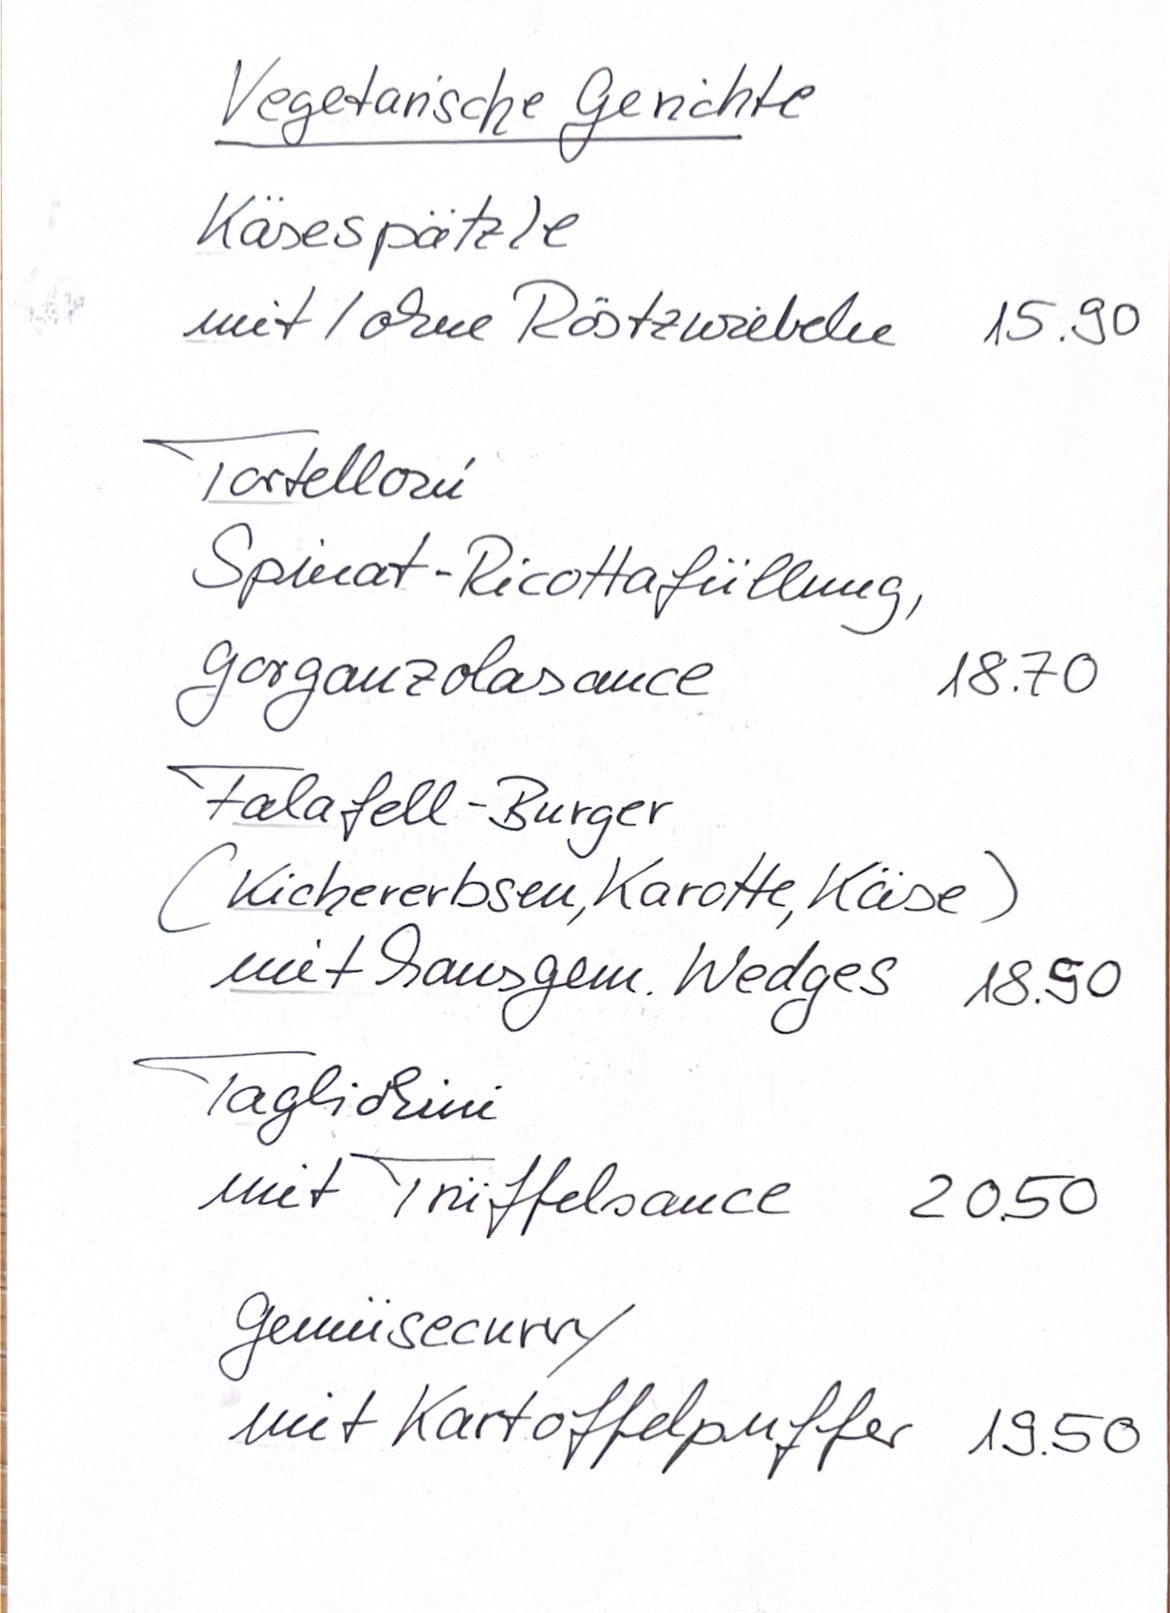 Vegetarische Gerichte
Käsespätzle
mit / ohne Röstzwiebeln 15.90
Tortelloni
Spinat-Ricottafüllung,
Gorganzolasauce 18.70
Falafell-Burger
(Kichererbsen, Karotte, Käse)
mit hausgem. Wedges 18.90
Tagliolini
mit Trüffelsauce 20.50
Gemüsecurry
mit Kartoffelpuffer 19.50